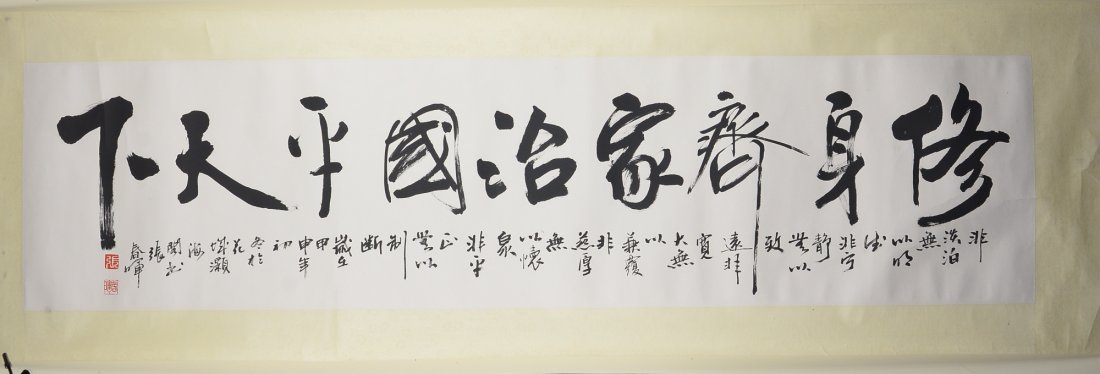 修身齊家治國平天下
非淡泊無以明德非宁靜無以致遠非寬大無以兼覆非慈厚無以懷眾非平正無以制斷歲在甲申年初冬於花城灝海閣書張春暉
張